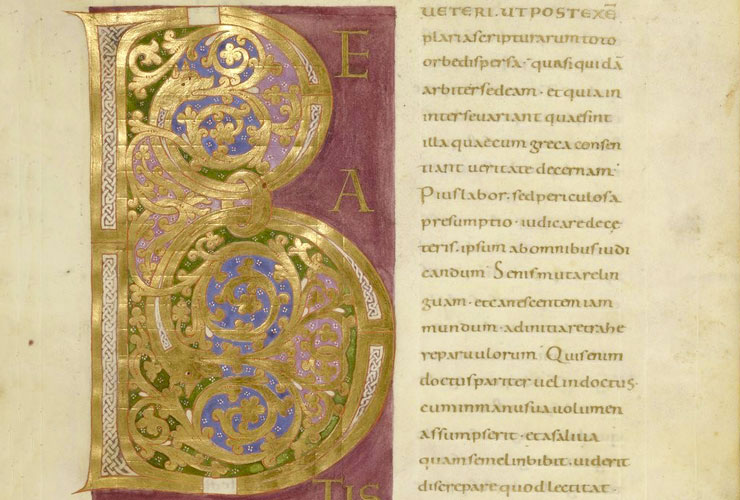 B
E
A
TIS
UETERI. UT POST EXĒ
plaria scripturarum toto
orbe dispersa · quasi quidā
arbiter sedeam · et quia in
inter se variant quae sint
illa quae cum greca consen
tiant veritate decernam ·
Pius labor · sed periculosa
presumptio · iudicare de ce
teris · ipsum ab omnibus iudi
candum · Senis mutare lin
guam · et canescentem iam
mundum · ad initia retrahe
re parvulorum · Quis enim
doctus pariter vel indoctus ·
cum in manus sua volumen
assumpserit · et a saliva
quam semel inbibit · viderit
discrepare quod lectitat ·